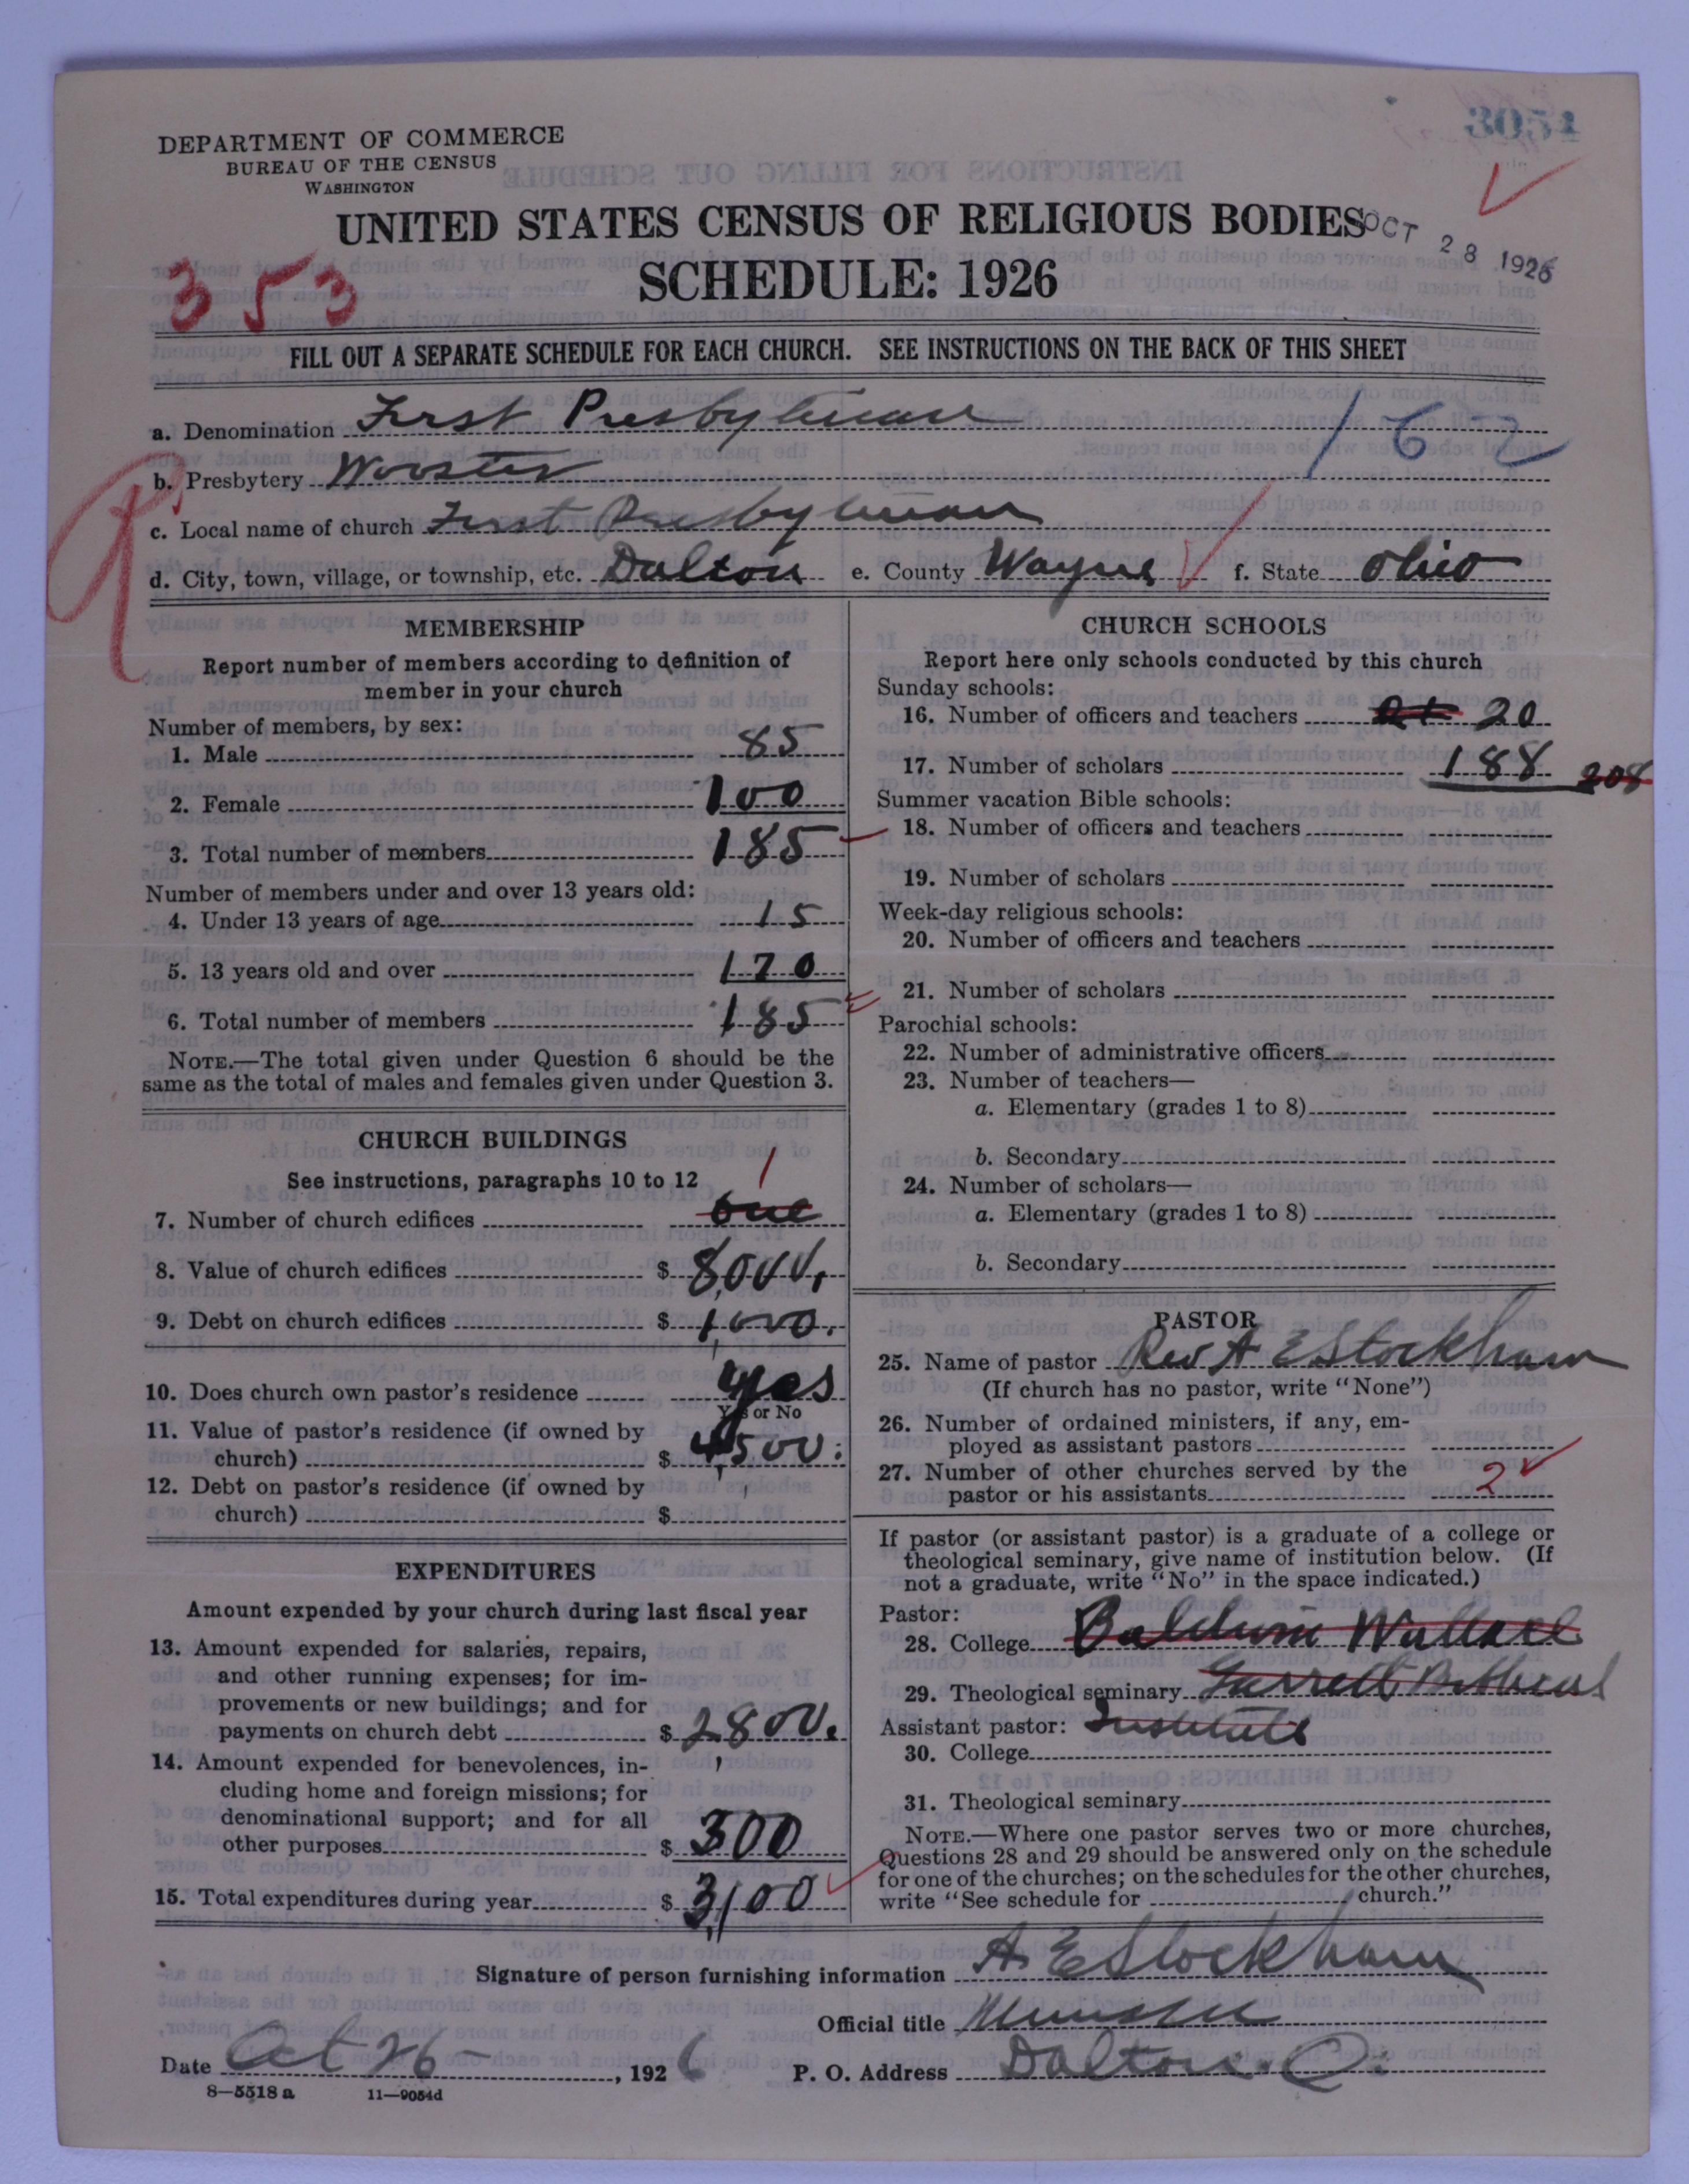 3054
DEPARTMENT OF COMMERCE
BUREAU OF THE CENSUS
WASHINGTON
UNITED STATES CENSUS OF RELIGIOUS BODIES
OCT 28 1926
353
SCHEDULE: 1926
FILL OUT A SEPARATE SCHEDULE FOR EACH CHURCH. SEE INSTRUCTIONS ON THE BACK OF THIS SHEET
a. Denomination First Presbyterian
b. Presbytery Wooster
c. Local name of church First Presbyterian
d. City, town, village, or township, etc. Dalton e. County Wayne f. State Ohio
MEMBERSHIP
Report number of members according to definition of
member in your church
Number of members, by sex:
1. Male 85
2. Female 100
3. Total number of members 185
Number of members under and over 13 years old:
4. Under 13 years of age 15
5. 13 years old and over 170
6. Total number of members 185
NOTE.—The total given under Question 6 should be the
same as the total of males and females given under Question 3.
CHURCH BUILDINGS
See instructions, paragraphs 10 to 12
1
7. Number of church edifices one
8. Value of church edifices $ 8,000.
9. Debt on church edifices $ 1,000.
10. Does church own pastor's residence yes
Yes or No
11. Value of pastor's residence (if owned by
church) $ 4,500.
12. Debt on pastor's residence (if owned by
church) $
EXPENDITURES
Amount expended by your church during last fiscal year
13. Amount expended for salaries, repairs,
and other running expenses; for im-
provements or new buildings; and for
payments on church debt $ 2,800.
14. Amount expended for benevolences, in-
cluding home and foreign missions; for
denominational support; and for all
other purposes $ 300
15. Total expenditures during year $ 3,100
CHURCH SCHOOLS
Report here only schools conducted by this church
Sunday schools:
16. Number of officers and teachers 20
17. Number of scholars 188 208
Summer vacation Bible schools:
18. Number of officers and teachers
19. Number of scholars
Week-day religious schools:
20. Number of officers and teachers
21. Number of scholars
Parochial schools:
22. Number of administrative officers
23. Number of teachers—
a. Elementary (grades 1 to 8)
b. Secondary
24. Number of scholars—
a. Elementary (grades 1 to 8)
b. Secondary
PASTOR
25. Name of pastor Rev A E Stockham
(If church has no pastor, write "None")
26. Number of ordained ministers, if any, em-
ployed as assistant pastors
27. Number of other churches served by the
pastor or his assistants 2
If pastor (or assistant pastor) is a graduate of a college or
theological seminary, give name of institution below. (If
not a graduate, write "No" in the space indicated.)
Pastor:
28. College Baldwin Wallace
29. Theological seminary Garrett Biblical
Assistant pastor: Institute
30. College
31. Theological seminary
NOTE.—Where one pastor serves two or more churches,
Questions 28 and 29 should be answered only on the schedule
for one of the churches; on the schedules for the other churches,
write "See schedule for church."
Signature of person furnishing information A. E Stockham
Official title Minister
Date Oct 26 , 1926 P. O. Address Dalton. O.
8—5518 a 11—9054d